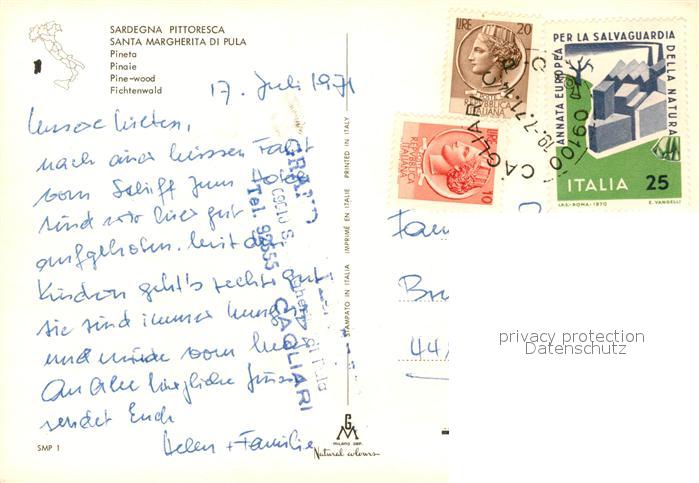 SARDEGNA PITTORESCA
SANTA MARGHERITA DI PULA
Pineta
Pinaie
Pine-wood
Fichtenwald
17. Juli 1971
Unsere Lieben,
nach einer heissen Fahrt
vom Schiff zum Hotel
sind wir hier gut
aufgehoben. Mit den
Kindern geht's recht gut
sie sind immer hungrig
und müde vom
An Alle herzliche Grüsse
sendet Euch
Helen + Familie
SMP 1
GRAND
Tel. 92555
CAGLIARI
STAMPATO IN ITALIA IMPRIMÉ EN ITALIE PRINTED IN ITALY
GM
MILANO DEP.
Natural colours
LIRE 20
REPUBBLICA ITALIANA
LIRE 10
REPUBBLICA ITALIANA
09100 CAGLIARI
ANNATA EUROPEA PER LA SALVAGUARDIA DELLA NATURA
ITALIA 25
I.P.S.-ROMA-1970 E. VANGELLI
Fam
44
privacy protection
Datenschutz